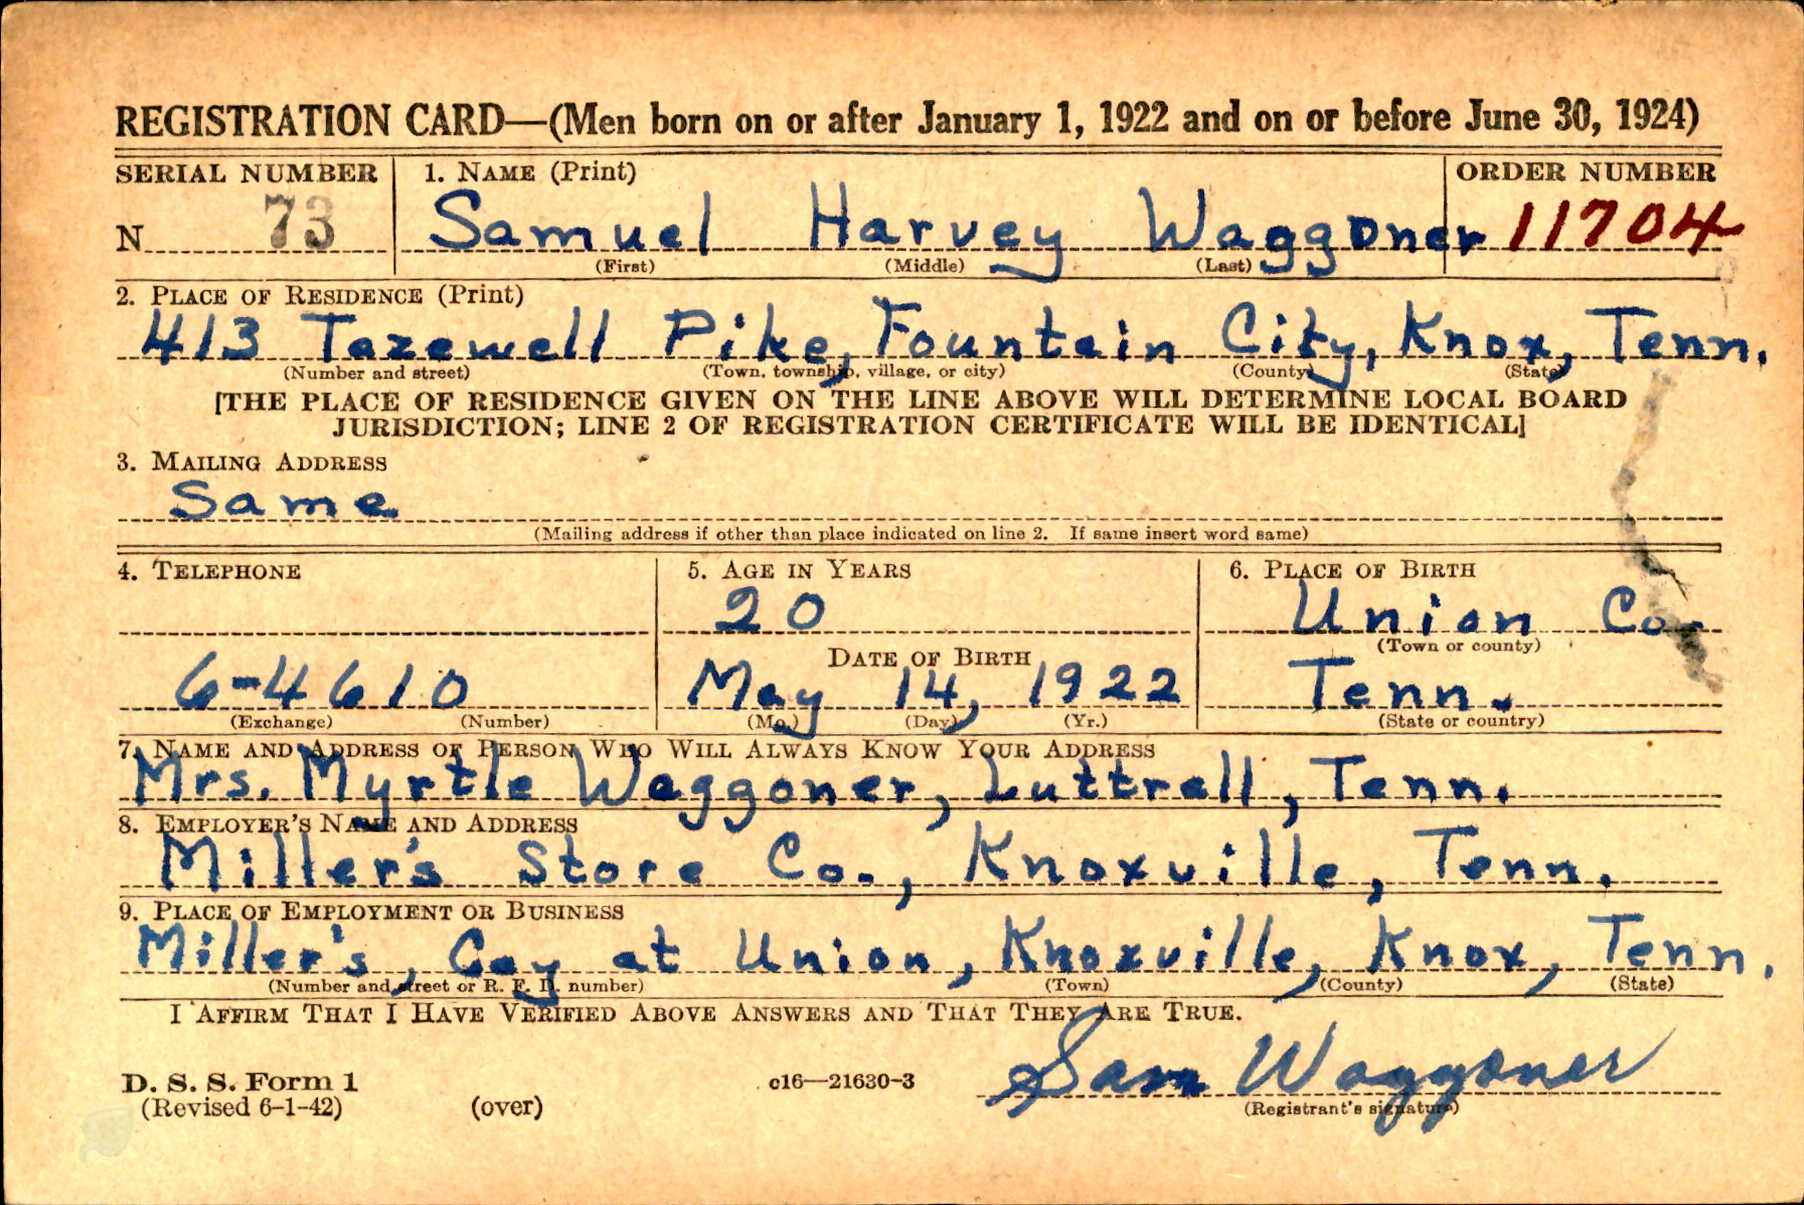 REGISTRATION CARD—(Men born on or after January 1, 1922 and on or before June 30, 1924)
SERIAL NUMBER 1. NAME (Print) ORDER NUMBER
N 73 Samuel Harvey Waggoner 11704
(First) (Middle) (Last)
2. PLACE OF RESIDENCE (Print)
413 Tazewell Pike, Fountain City, Knox, Tenn.
(Number and street) (Town, township, village, or city) (County) (State)
[THE PLACE OF RESIDENCE GIVEN ON THE LINE ABOVE WILL DETERMINE LOCAL BOARD
JURISDICTION; LINE 2 OF REGISTRATION CERTIFICATE WILL BE IDENTICAL]
3. MAILING ADDRESS
Same
(Mailing address if other than place indicated on line 2. If same insert word same)
4. TELEPHONE 5. AGE IN YEARS 6. PLACE OF BIRTH
20 Union Co.
DATE OF BIRTH (Town or county)
6-4610 May 14, 1922 Tenn.
(Exchange) (Number) (Mo.) (Day) (Yr.) (State or country)
7. NAME AND ADDRESS OF PERSON WHO WILL ALWAYS KNOW YOUR ADDRESS
Mrs. Myrtle Waggoner, Luttrell, Tenn.
8. EMPLOYER'S NAME AND ADDRESS
Miller's Store Co., Knoxville, Tenn.
9. PLACE OF EMPLOYMENT OR BUSINESS
Miller's, Gay at Union, Knoxville, Knox, Tenn.
(Number and street or R. F. D. number) (Town) (County) (State)
I AFFIRM THAT I HAVE VERIFIED ABOVE ANSWERS AND THAT THEY ARE TRUE.
D. S. S. Form 1 c16—21630-3 Sam Waggoner
(Revised 6-1-42) (over) (Registrant's signature)